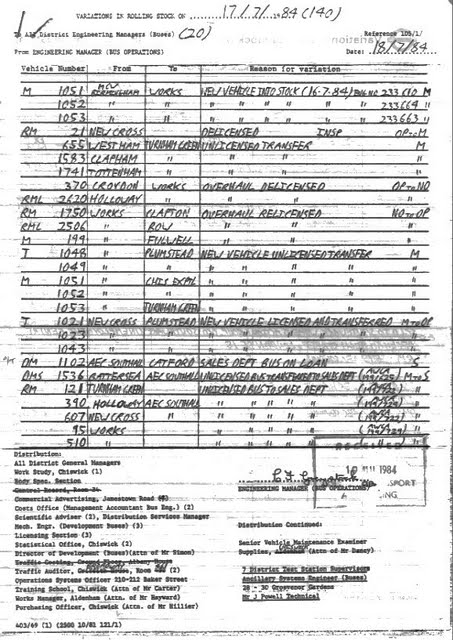 VARIATIONS IN ROLLING STOCK ON 17/7/1984 (140)
To All District Engineering Managers (Buses) (20)
Reference 105/1/
From ENGINEERING MANAGER (BUS OPERATIONS)
Date: 18/7/84
Vehicle Number From To Reason for variation
M 1051 MCW BIRMINGHAM WORKS NEW VEHICLE INTO STOCK (16-7-84) ENG NO 233 610 M
1052 " " " " " " 233664 "
1053 " " " " " " 233663 "
RM 21 NEW CROSS DELICENSED INSP OP TO M
655 WEST HAM TURNHAM GREEN UNLICENSED TRANSFER M
1583 CLAPHAM " " " "
1741 TOTTENHAM " " " "
370 CROYDON WORKS OVERHAUL DELICENSED OP TO NO
RML 2620 HOLLOWAY " " " "
RM 1750 WORKS CLAPTON OVERHAUL RELICENSED NO TO OP
RML 2506 " BOW " " "
M 194 " FULWELL " " "
T 1048 " PLUMSTEAD NEW VEHICLE UNLICENSED TRANSFER M
1049 " " " " " " "
M 1051 " CHIS EXPTL " " " " "
1052 " " " " " " "
1053 " TURNHAM GREEN " " " " "
T 1021 NEW CROSS PLUMSTEAD NEW VEHICLE LICENSED AND TRANSFERRED M TO OP
1023 " " " " " " "
1043 " " " " " " "
DM 1102 AEC SOUTHALL CATFORD SALES DEPT BUS ON LOAN S
DMS 1536 BATTERSEA AEC SOUTHALL UNLICENSED BUS TRANSFERRED TO SALES DEPT M TO S
RM 121 TURNHAM GREEN " UNLICENSED BUS TO SALES DEPT "
390 HOLLOWAY AEC SOUTHALL " " " " "
607 NEW CROSS " " " " " "
95 WORKS " " " " " "
510 " " " " " "
Distribution:
All District General Managers
Work Study, Chiswick (1)
Body Spec. Section
Commercial Advertising, Jamestown Road
Costs Office (Management Accountant Bus Eng.) (2)
Scientific Adviser (2), Distribution Services Manager
Mech. Engr. (Development Buses) (3)
Licensing Section (3)
Statistical Office, Chiswick (2)
Director of Development (Buses)(Attn of Mr Simon)
Traffic Costing, Ground Floor, Albany House
Traffic Auditor, House, Room (2)
Operations Systems Officer 210-212 Baker Street
Training School, Chiswick (Attn of Mr Carter)
Works Manager, Aldenham (Attn of Mr Hayward)
Purchasing Officer, Chiswick (Attn of Mr Hillier)
ENGINEERING MANAGER (BUS OPERATIONS)
RECEIVED
1984
SPORT
NG
Distribution Continued:
Senior Vehicle Maintenance Examiner
Supplies, (Attn of Mr Dancy)
7 District Test Station Supervisors
Ancillary Systems Engineer (Buses)
28 - 30 Grosvenor Gardens
Mr J Powell Technical
403/69 (1) (2500 10/81 121/1)